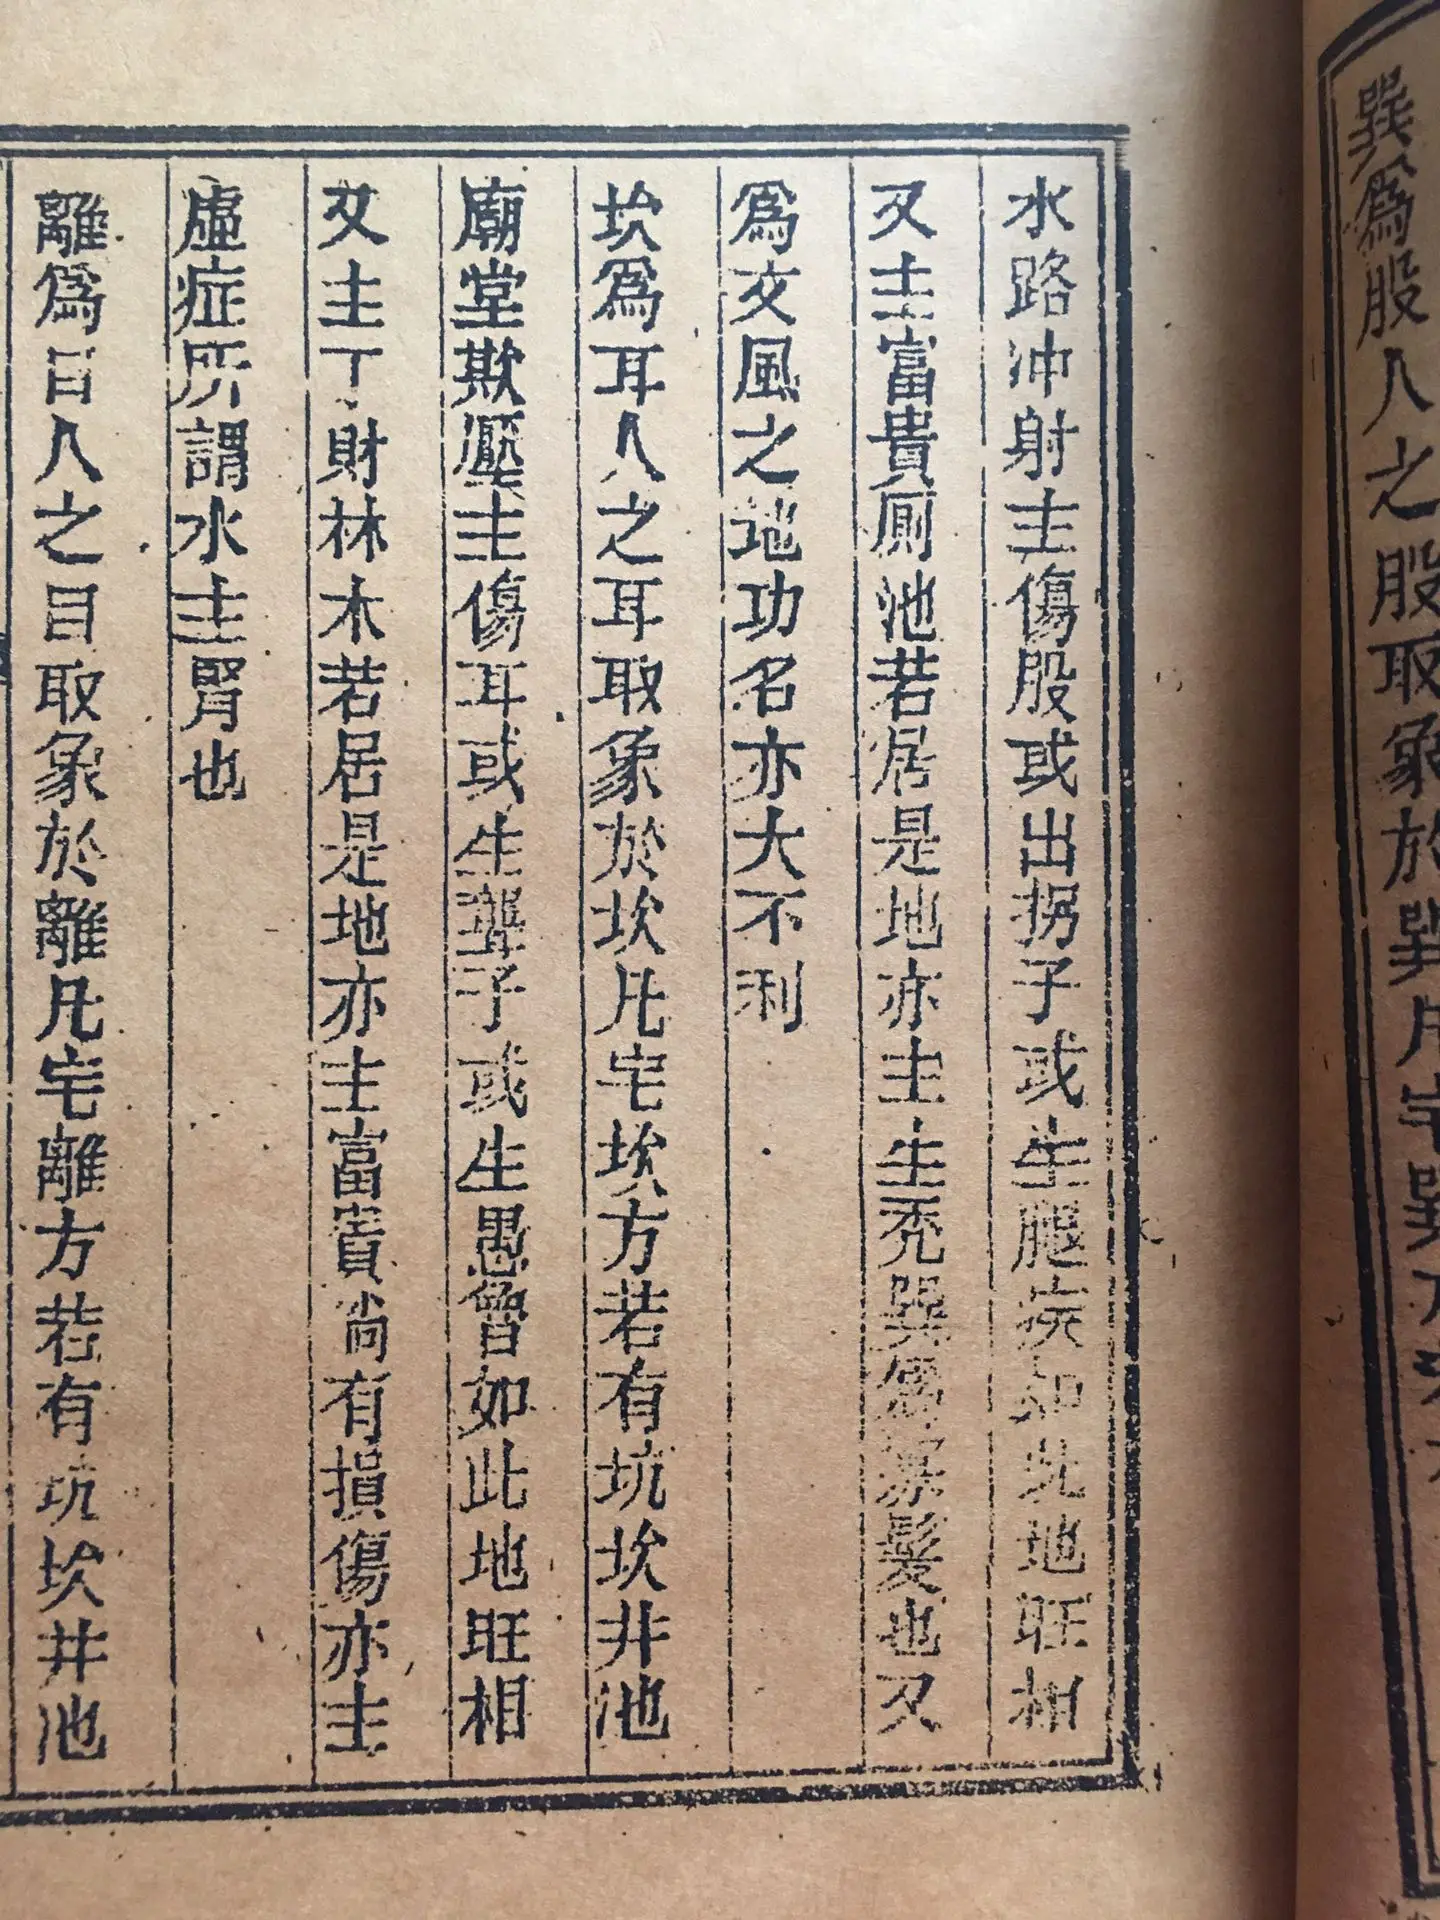 巽為股人之股取象於巽凡宅巽方
水路冲射主傷股或出拐子或生腿疾如此地旺相
又主富貴厠池若居是地亦主生秃巽為寡髮也又
為文風之地功名亦大不利
坎為耳人之耳取象於坎凡宅坎方若有坑坎井池
廟堂欺壓主傷耳或生聾子或生愚魯如此地旺相
又主丁財林木若居是地亦主富貴尚有損傷亦主
虛症所謂水主腎也
離為目人之目取象於離凡宅離方若有坑坎井池